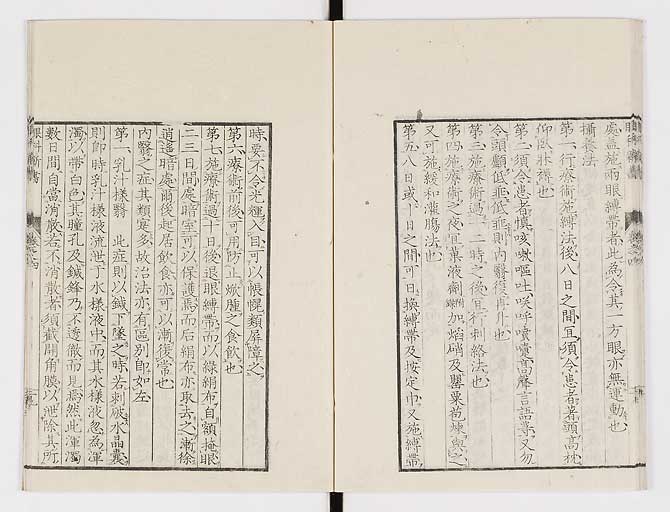 處盖施兩眼縛帶者此為令其一方眼亦無運動也
攝養法
第一行療術施縛法後八日之間宜須令患者著頭高枕
仰臥牀褥也
第二須令患者慎咳嗽嘔吐咲呼噴嚏高聲言語等又勿
令頭顱低垂低垂則內翳復再升也
第三施療術過十二時之後宜行刺絡法也
第四施療術之夜宜菓液劑加焰硝及罌粟苞煉與之
又可施緩和灌腸法也
第五八日或十日之間可日換縛帶及按定巾又施縛帶
時要不令光輝入目可以帳幌類屏障之
第六療術前後可用防止焮腫之食飲也
第七施療術過十日後退眼縛帶而以綠絹布自額掩眼
二三日間處暗室可以保護焉而后絹布亦取去之漸徐
逍遙暗處爾後起居飲食亦可以漸復常也
內翳之症其類寔多故治法亦有區別即如左
第一乳汁樣翳 此症則以鍼下墜之時若刺破水晶囊
則即時乳汁樣液流泄于水樣液中而其水樣液忽為渾
濁以帶白色其瞳孔及鍼鋒乃不透徹而見焉然此渾濁
數日間自當消散若不消散者須截開角膜以泄除其所
眼科新書